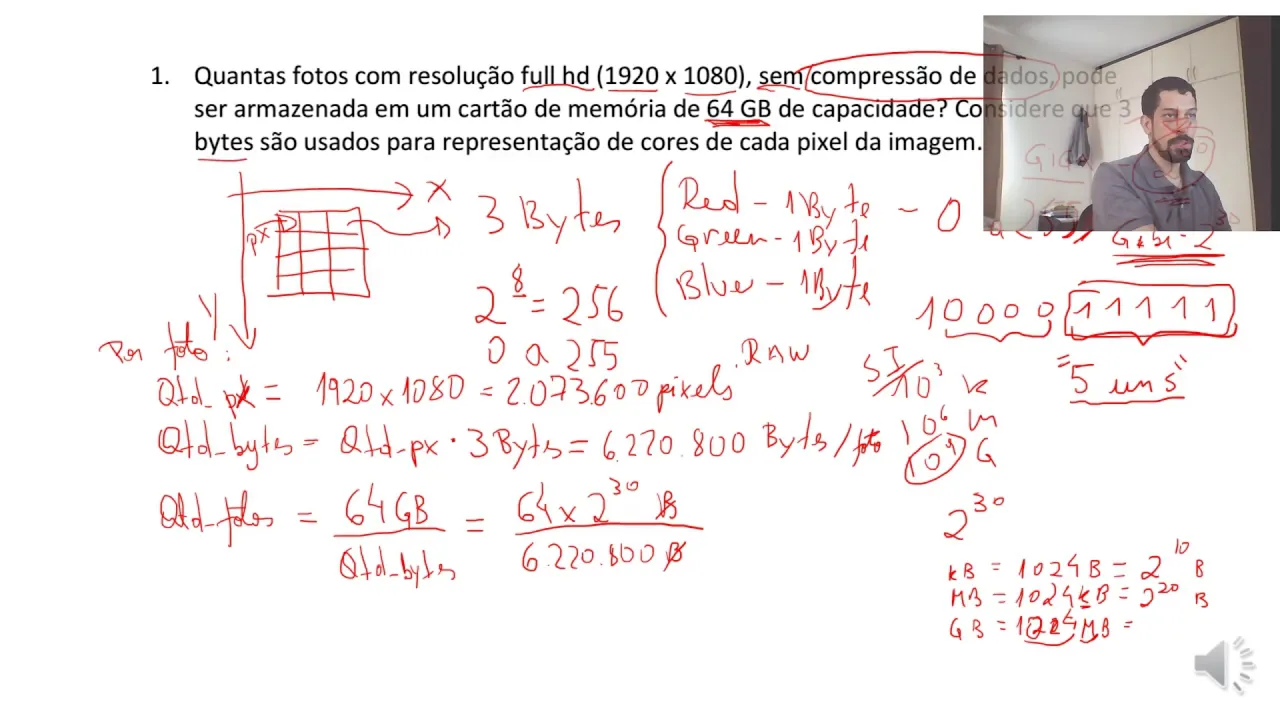 1. Quantas fotos com resolução full hd (1920 x 1080), sem compressão de dados, pode
ser armazenada em um cartão de memória de 64 GB de capacidade? Considere que 3
bytes são usados para representação de cores de cada pixel da imagem.
X
px
Y
3 Bytes
Red - 1Byte - 0
Green - 1Byte
Blue - 1Byte
2^8 = 256
0 a 255
10000 11111
"5 uns"
Por foto:
RAW
Qtd_px = 1920x1080 = 2.073.600 pixels
Qtd_bytes = Qtd_px · 3 Bytes = 6.220.800 Bytes/foto
SI
10^3 k
10^6 M
10^9 G
Qtd_fotos = 64GB / Qtd_bytes = 64 x 2^30 B / 6.220.800 B
2^30
kB = 1024B = 2^10 B
MB = 1024kB = 2^20 B
GB = 1024MB =